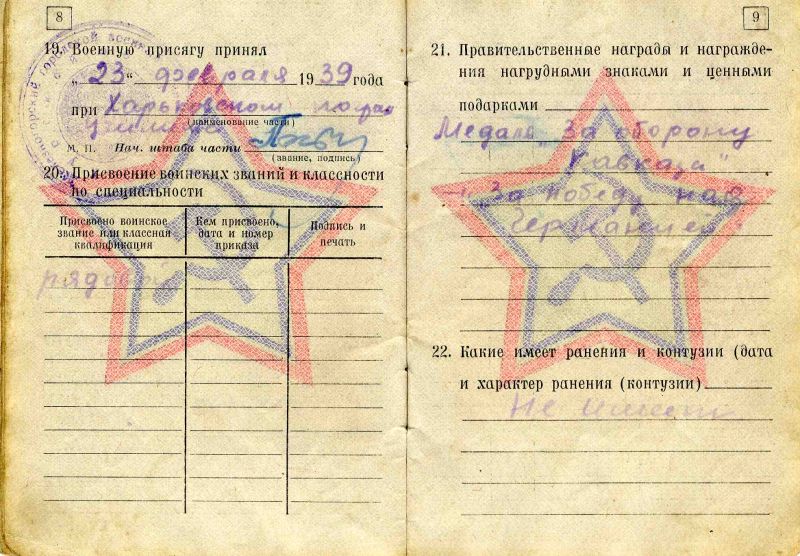 8
19. Военную присягу принял
„ 23 “ февраля 1939 года
при Харьковском
(наименование части)
М. П. Нач. штаба части
(звание, подпись)
20. Присвоение воинских званий и классности
по специальности
Присвоено воинское
звание или классная
квалификация
Кем присвоено,
дата и номер
приказа
Подпись и
печать
рядовой
9
21. Правительственные награды и награжде-
ния нагрудными знаками и ценными
подарками
Медаль „За оборону
Кавказа"
— „За победу над
Германией"
22. Какие имеет ранения и контузии (дата
и характер ранения (контузии)
Не имеет